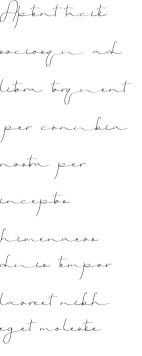 Aptent taciti
sociosqu ad
litora torquent
per conubia
nostra per
inceptos
himenaeos
duis tempor
laoreet nibh
eget molestie